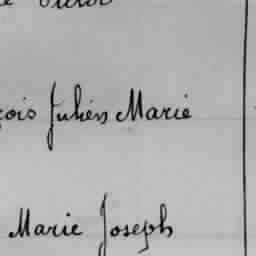 çois Julien Marie
Marie Joseph